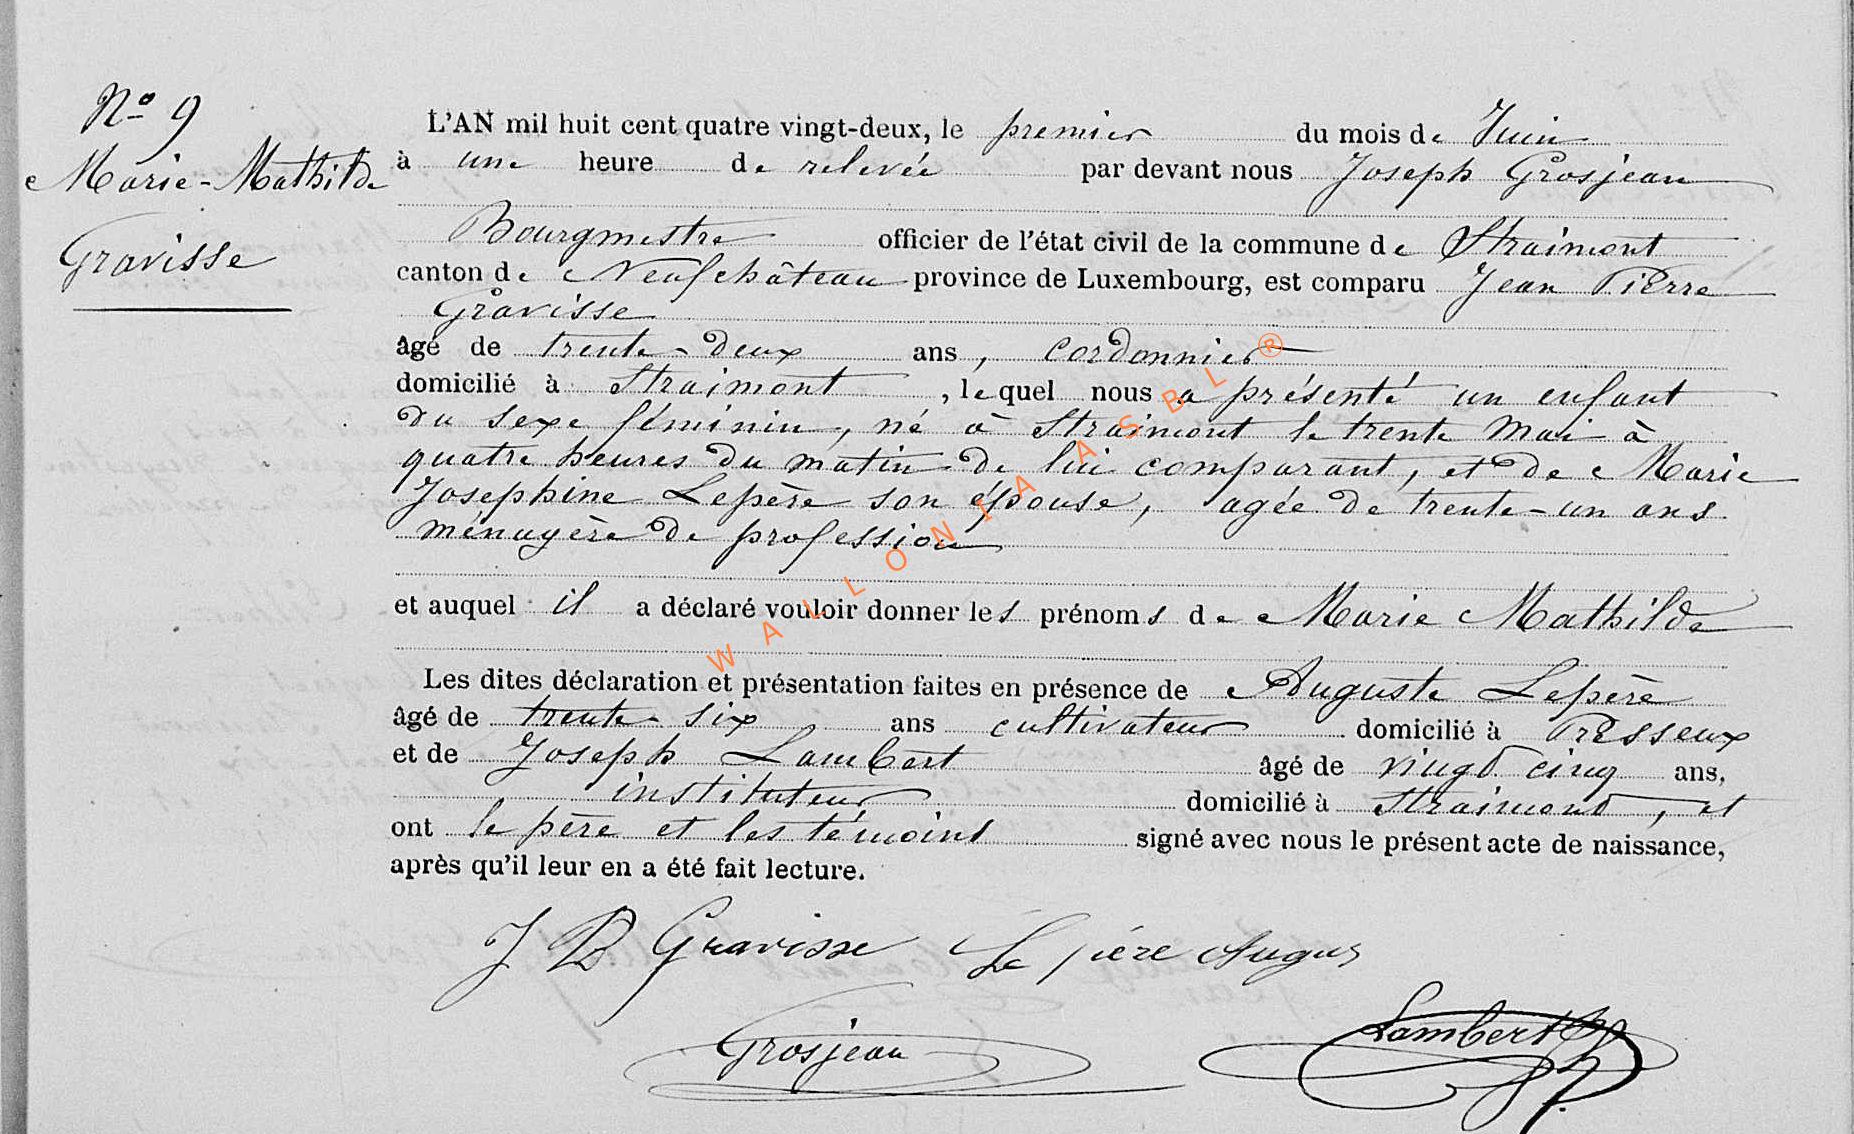 Nº 9
Marie-Mathilde
Gravisse
L'AN mil huit cent quatre vingt-deux, le premier du mois de Juin
à une heure de relevée par devant nous Joseph Grosjean
Bourgmestre officier de l'état civil de la commune de Straimont
canton de Neufchâteau province de Luxembourg, est comparu Jean Pierre
Gravisse
âgé de trente-deux ans, cordonnier
domicilié à Straimont, lequel nous a présenté un enfant
du sexe féminin, né à Straimont le trente Mai à
quatre heures du matin de lui comparant, et de Marie
Josephine Lepère son épouse, agée de trente-un ans
ménagère de profession
et auquel il a déclaré vouloir donner les prénoms de Marie Mathilde
Les dites déclaration et présentation faites en présence de Auguste Lepère
âgé de trente-six ans cultivateur domicilié à Presseux
et de Joseph Lambert âgé de vingt cinq ans,
instituteur domicilié à Straimont, et
ont le père et les témoins signé avec nous le présent acte de naissance,
après qu'il leur en a été fait lecture.
J P Gravisse Le père Augus
Grosjean Lambert
WALLONIA ASBL ®